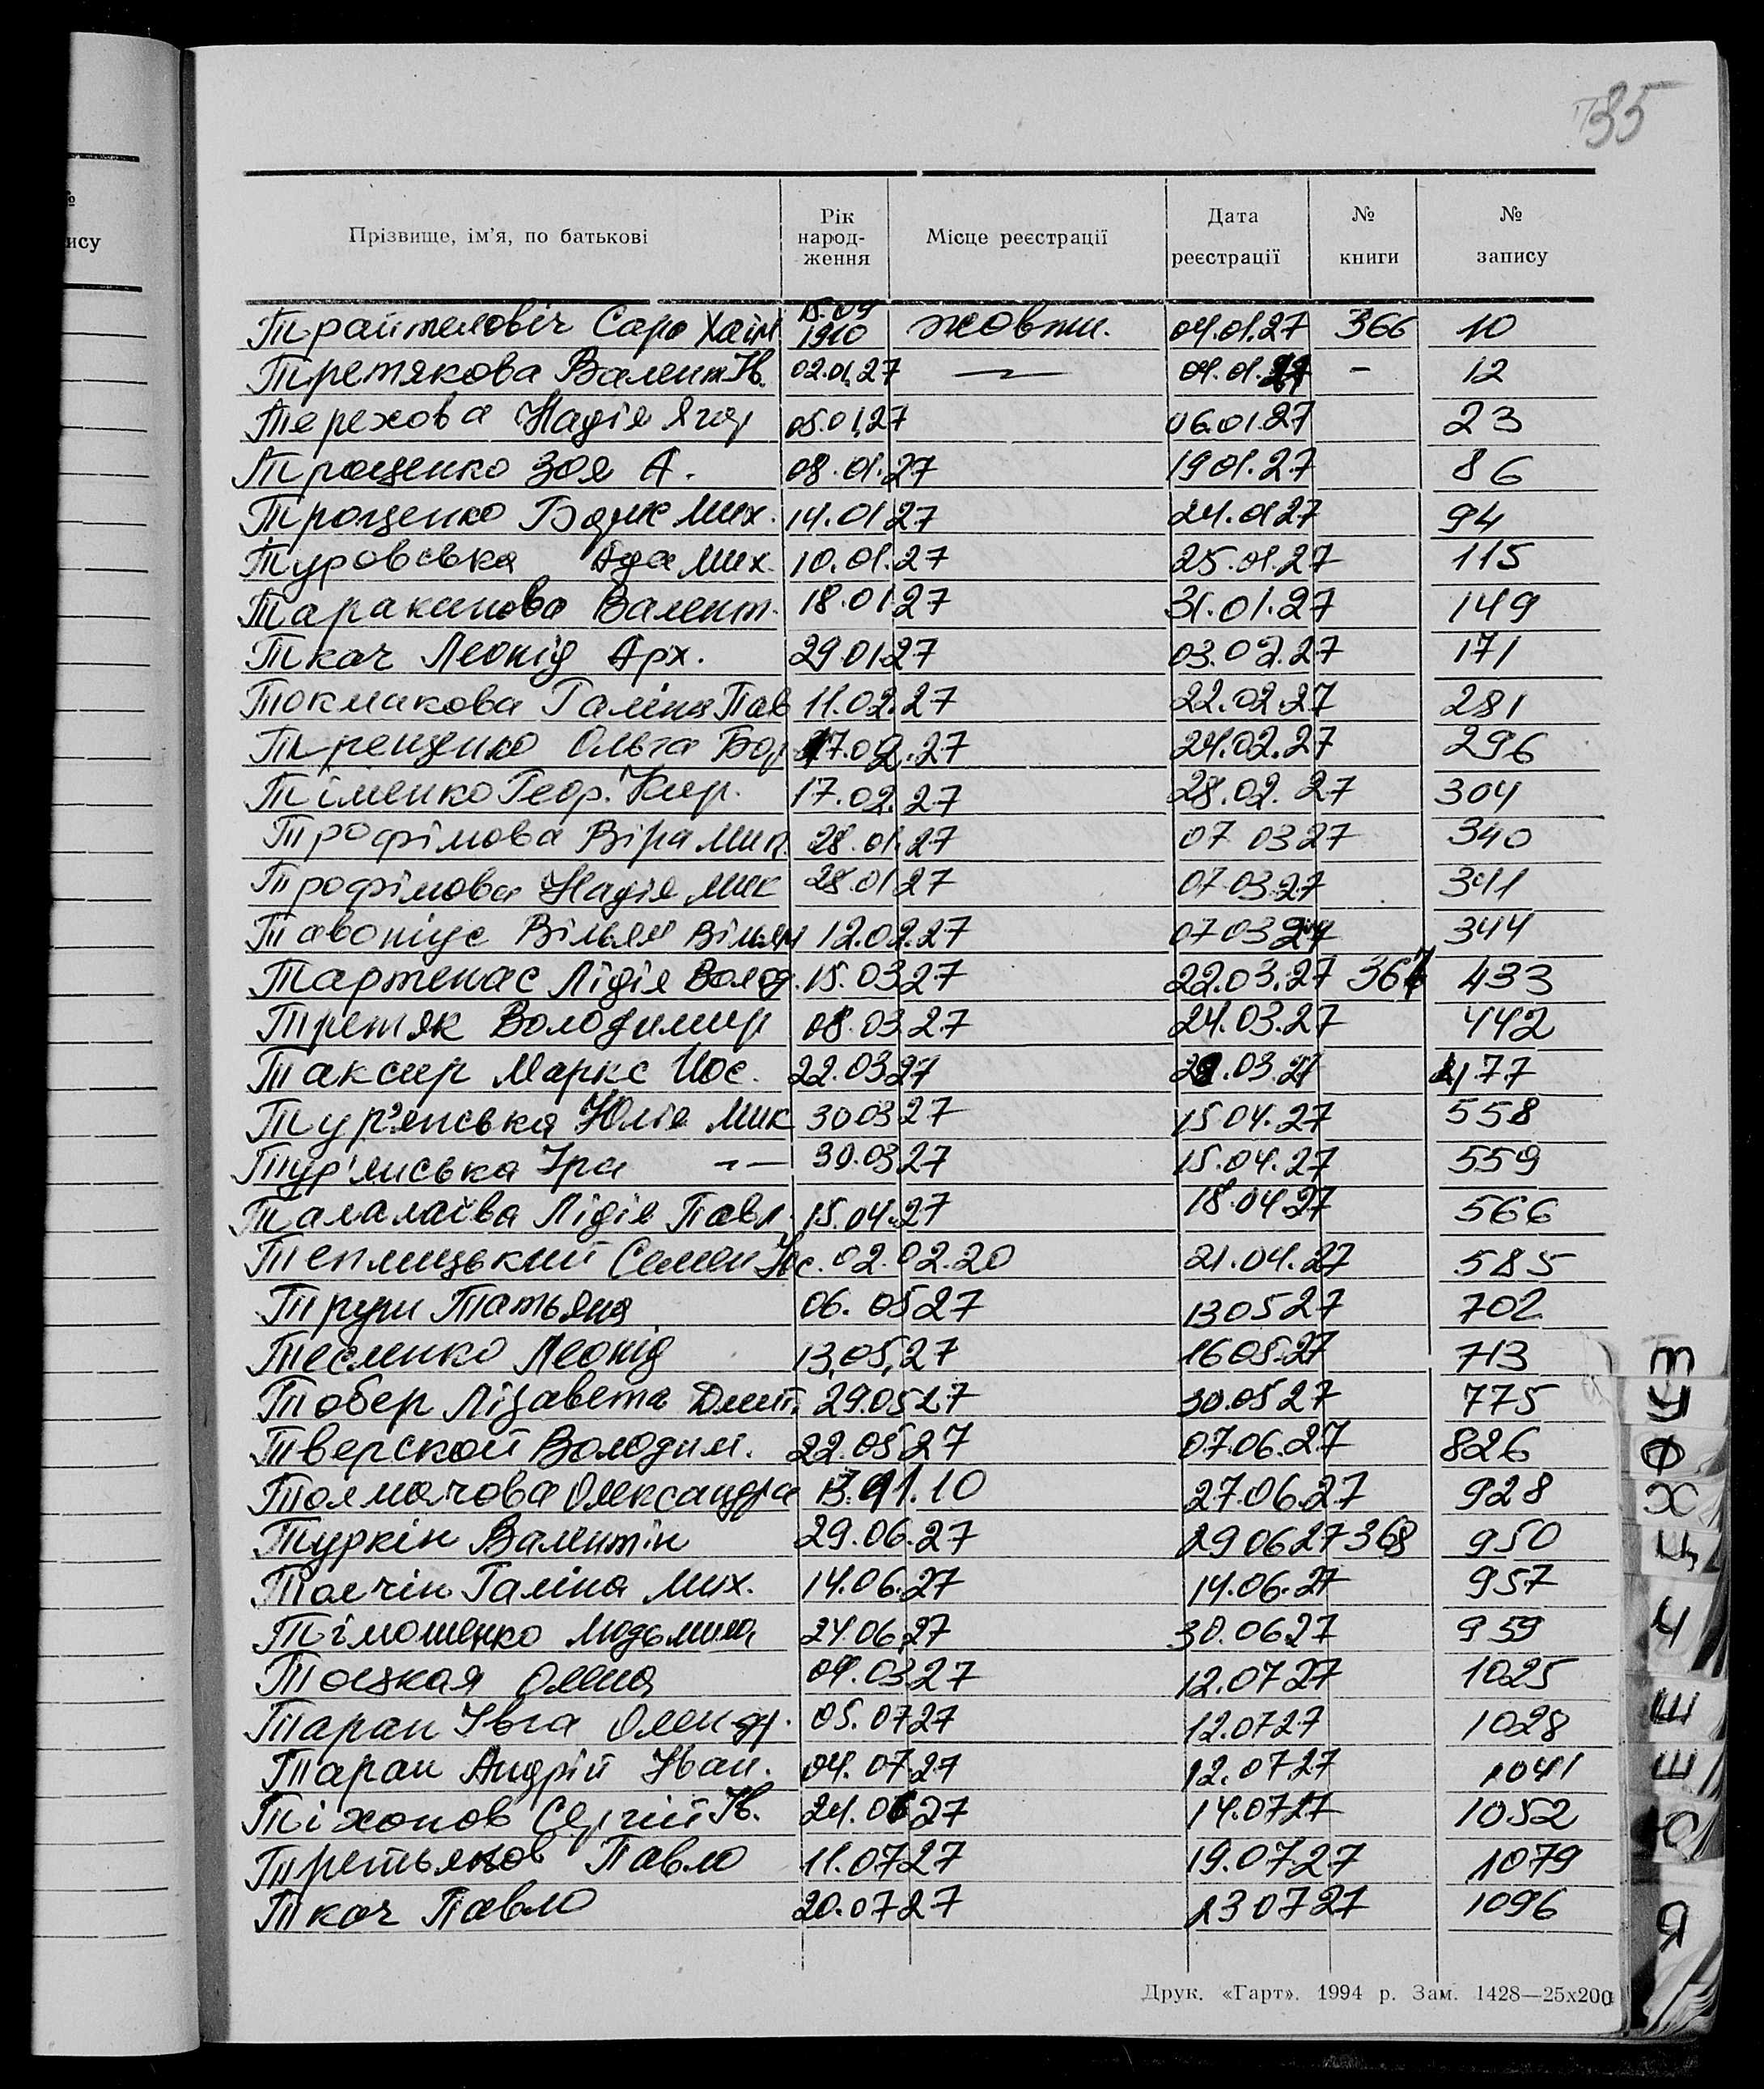 35
№
ису
Прізвище, ім'я, по батькові Рік народ-ження Місце реєстрації Дата реєстрації № книги № запису
Трайтеловіч Сара Хаім 15.09 1910 жовтн. 04.01.27 366 10
Третякова Валент Ів. 02.01.27 — 04.01.27 - 12
Терехова Надія 05.01.27 06.01.27 23
Трощенко Зоя А. 08.01.27 19.01.27 86
Трощенко Мих. 14.01.27 24.01.27 94
Туровська Ада Мих. 10.01.27 25.01.27 115
Тараканова Валент. 18.01.27 31.01.27 149
Ткач Леонід Арх. 29.01.27 03.02.27 171
Токмакова Галіна Пав 11.02.27 22.02.27 281
Трещенко Ольга Бор 17.02.27 24.02.27 296
Тіменко Геор. Кир. 17.02.27 28.02.27 304
Трофімова Віра Мик. 28.01.27 07 03 27 340
Трофімова Надія Мик 28.01 27 07.03.27 341
Вільям Вільям 12.02.27 07 03 27 344
Тартенас Лідія Волод. 15.03 27 22.03.27 367 433
Третяк Володимир 08.03 27 24.03.27 442
Таксир Маркс Иос. 22.03 27 .03.27 477
Тур'янська Юлія Мик 30 03 27 15 04.27 558
Тур'янська Іра —"— 30.03 27 15.04.27 559
Талалаїва Лідія Павл. 15.04.27 18.04 27 566
Теплицький Семен Ис. 02.02.20 21.04.27 585
Труш Татьяна 06.05 27 13 05 27 702
Тесленко Леонід 13,05,27 16 05.27 713
Тобер Лізавета Дмит. 29.05 27 30.05 27 775
Тверской Володим. 22.05 27 07.06.27 826
Толмачова Олександра 13.01.10 27.06.27 928
Туркін Валентін 29.06.27 29 06 27 368 950
Толчін Галіна Мих. 14.06.27 14.06.27 957
Тімошенко Людьмила 24.06.27 30.06 27 959
Тоцкая Олена 04.03 27 12.07 27 1025
Таран Івга Олендр. 05.07 27 12.07 27 1028
Таран Андрій Іван. 04.07.27 12.07 27 1041
Тіхонов Сергій Ів. 24.06 27 14.07 27 1052
Третьяков Павло 11.07 27 19.07 27 1079
Ткач Павло 20.07 27 23 07 27 1096
Т
У
Ф
Х
Ц
Ч
Ш
Щ
Ю
Я
Друк. «Гарт». 1994 р. Зам. 1428—25х200